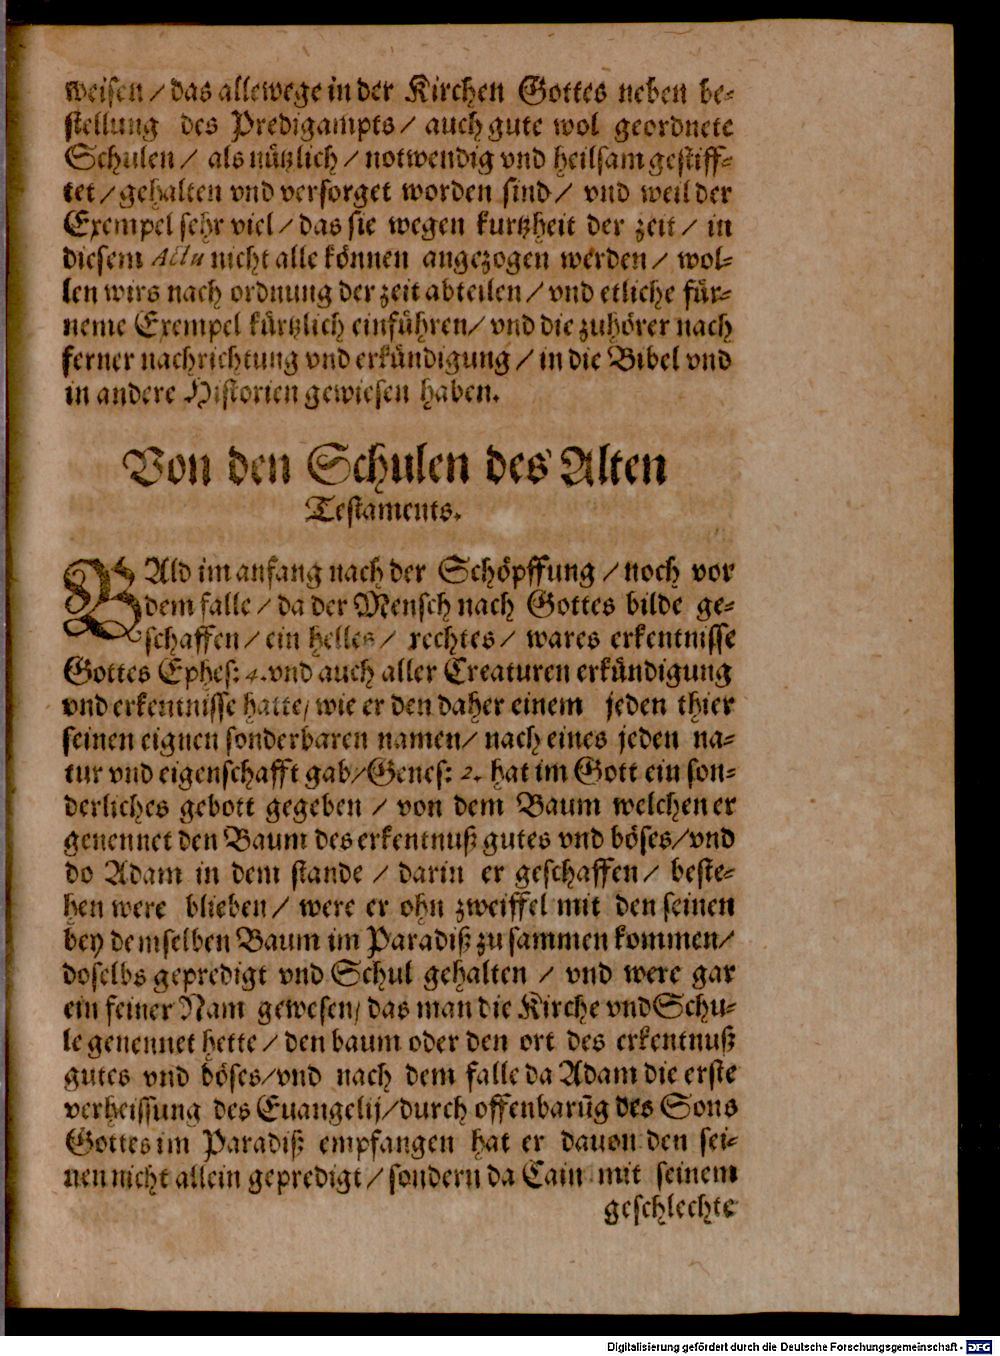 weisen / das allewege in der Kirchen Gottes neben be-
stellung des Predigampts / auch gute wol geordnete
Schulen / als nützlich / notwendig vnd heilsam gestiff-
tet / gehalten vnd versorget worden sind / vnd weil der
Exempel sehr viel / das sie wegen kurtzheit der zeit / in
diesem Actu nicht alle können angezogen werden / wol-
len wirs nach ordnung der zeit abteilen / vnd etliche für-
neme Exempel kürtzlich einführen / vnd die zuhörer nach
ferner nachrichtung vnd erkündigung / in die Bibel vnd
in andere Historien gewiesen haben.
Von den Schulen des Alten
Testaments.
BAld im anfang nach der Schöpffung / noch vor
dem falle / da der Mensch nach Gottes bilde ge-
schaffen / ein helles / rechtes / wares erkentnisse
Gottes Ephes: 4. vnd auch aller Creaturen erkündigung
vnd erkentnisse hatte / wie er den daher einem jeden thier
seinen eignen sonderbaren namen / nach eines jeden na-
tur vnd eigenschafft gab / Genes: 2. hat im Gott ein son-
derliches gebott gegeben / von dem Baum welchen er
genennet den Baum des erkentnuß gutes vnd böses / vnd
do Adam in dem stande / darin er geschaffen / beste-
hen were blieben / were er ohn zweiffel mit den seinen
bey demselben Baum im Paradiß zu sammen kommen /
doselbs gepredigt vnd Schul gehalten / vnd were gar
ein feiner Nam gewesen / das man die Kirche vnd Schu-
le genennet hette / den baum oder den ort des erkentnuß
gutes vnd böses / vnd nach dem falle da Adam die erste
verheissung des Euangelij / durch offenbarūg des Sons
Gottes im Paradiß empfangen hat er dauon den sei-
nen nicht allein gepredigt / sondern da Cain mit seinem
geschlechte
Digitalisierung gefördert durch die Deutsche Forschungsgemeinschaft - DFG